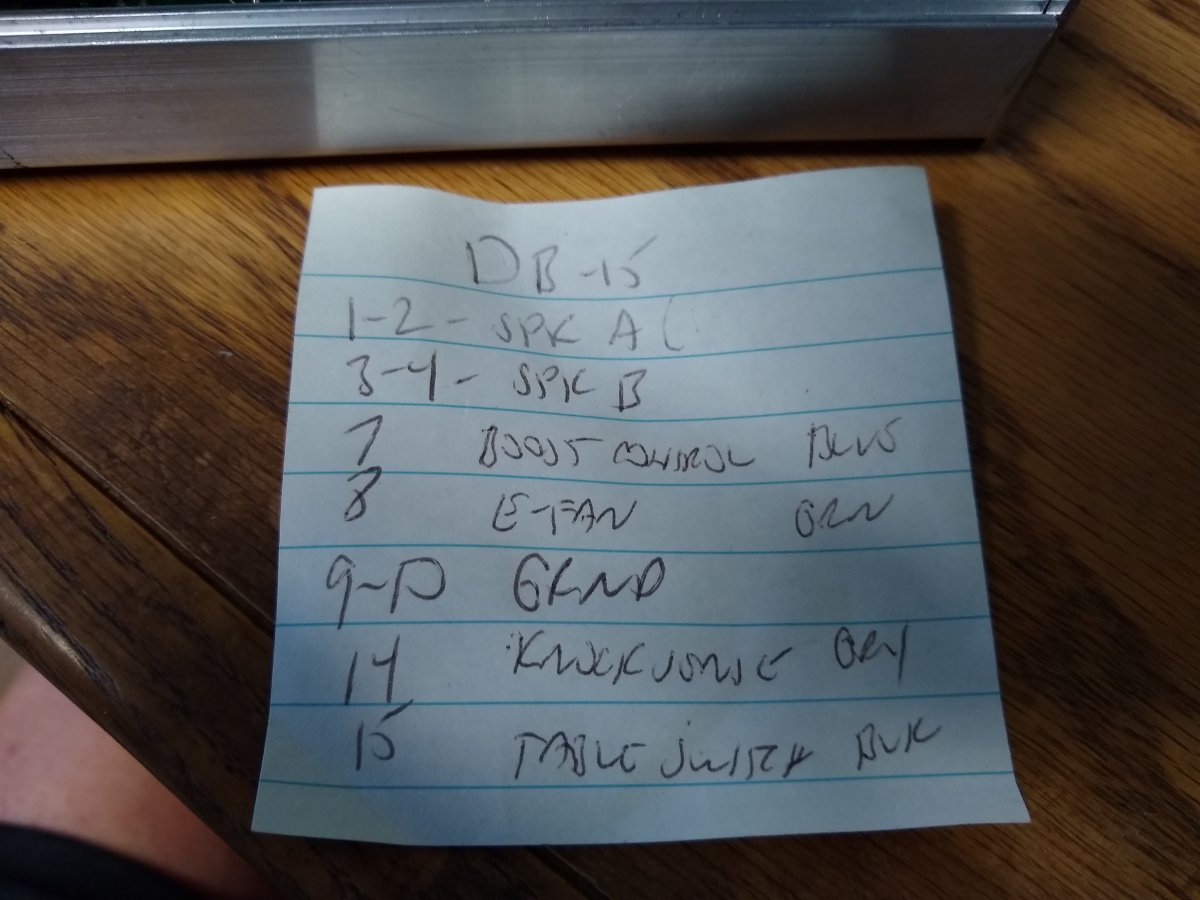 DB-15
1-2 - SPK A (
3-4 - SPK B
7 BOOST CONTROL BLUE
8 E-FAN GRN
GRND
14 KNOCK SENSE GRY
15 TABLE SWITCH BLK